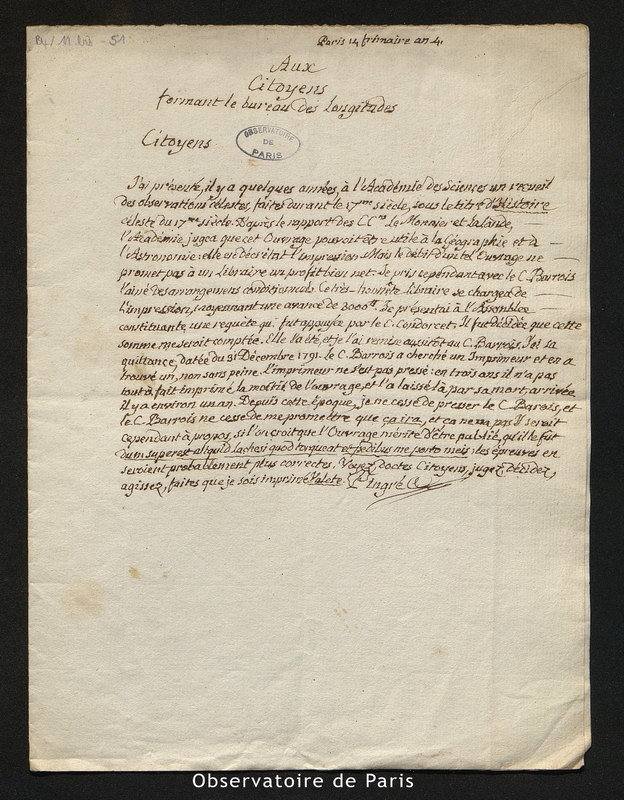 B4/11 bis - 51
Paris 14 frimaire an 4.
Aux
Citoyens
formant le bureau des longitudes
Citoyens
OBSERVATOIRE
DE
PARIS
J'ai présenté, il y a quelques années, à l'Académie des Sciences un recueil
des observations célestes, faites durant le 17me siècle, sous le titre d'Histoire
céleste du 17me siècle. D'après le rapport des CCns le Monnier et Lalande,
l'Académie jugea que cet Ouvrage pouvoit être utile à la Géographie et à
l'Astronomie: elle en décrétât l'impression. Mais le débit d'un tel Ouvrage ne
promet pas à un Libraire un profit bien net. Je pris cependant avec le C. Barrois
l'ainé des arrangemens conditionnels. Ce très-honnête Libraire se chargea de
l'impression, moyennant une avance de 3000tt. Je présentai à l'Assemblée
constituante une requête qui fut appuyée par le C. Condorcet. Il fut décidé que cette
somme me seroit comptée. Elle l'a été, et je l'ai remise aussitôt au C. Barrois. J'ai sa
quittance, datée du 31 Décembre 1791. le C. Barrois a cherché un Imprimeur et en a
trouvé un, non sans peine. L'imprimeur ne s'est pas pressé: en trois ans il n'a pas
tout à fait imprimé la moitié de l'ouvrage, et l'a laissé là par sa mort arrivée
il y a environ un an. Depuis cette époque, je ne cesse de presser le C. Barois, et
le C. Barrois ne cesse de me promettre que ça ira, et ça ne va pas. Il seroit
cependant à propos, si l'on croit que l'Ouvrage mérite d'être publié, qu'il le fut
dum superest aliquid Lachesi quod torqueat et pedibus me porto meis: les épreuves en
seroient probablement plus correctes. Voyez, doctes Citoyens, jugez, décidez,
agissez, faites que je sois imprimé. Valete. Pingré
Observatoire de Paris